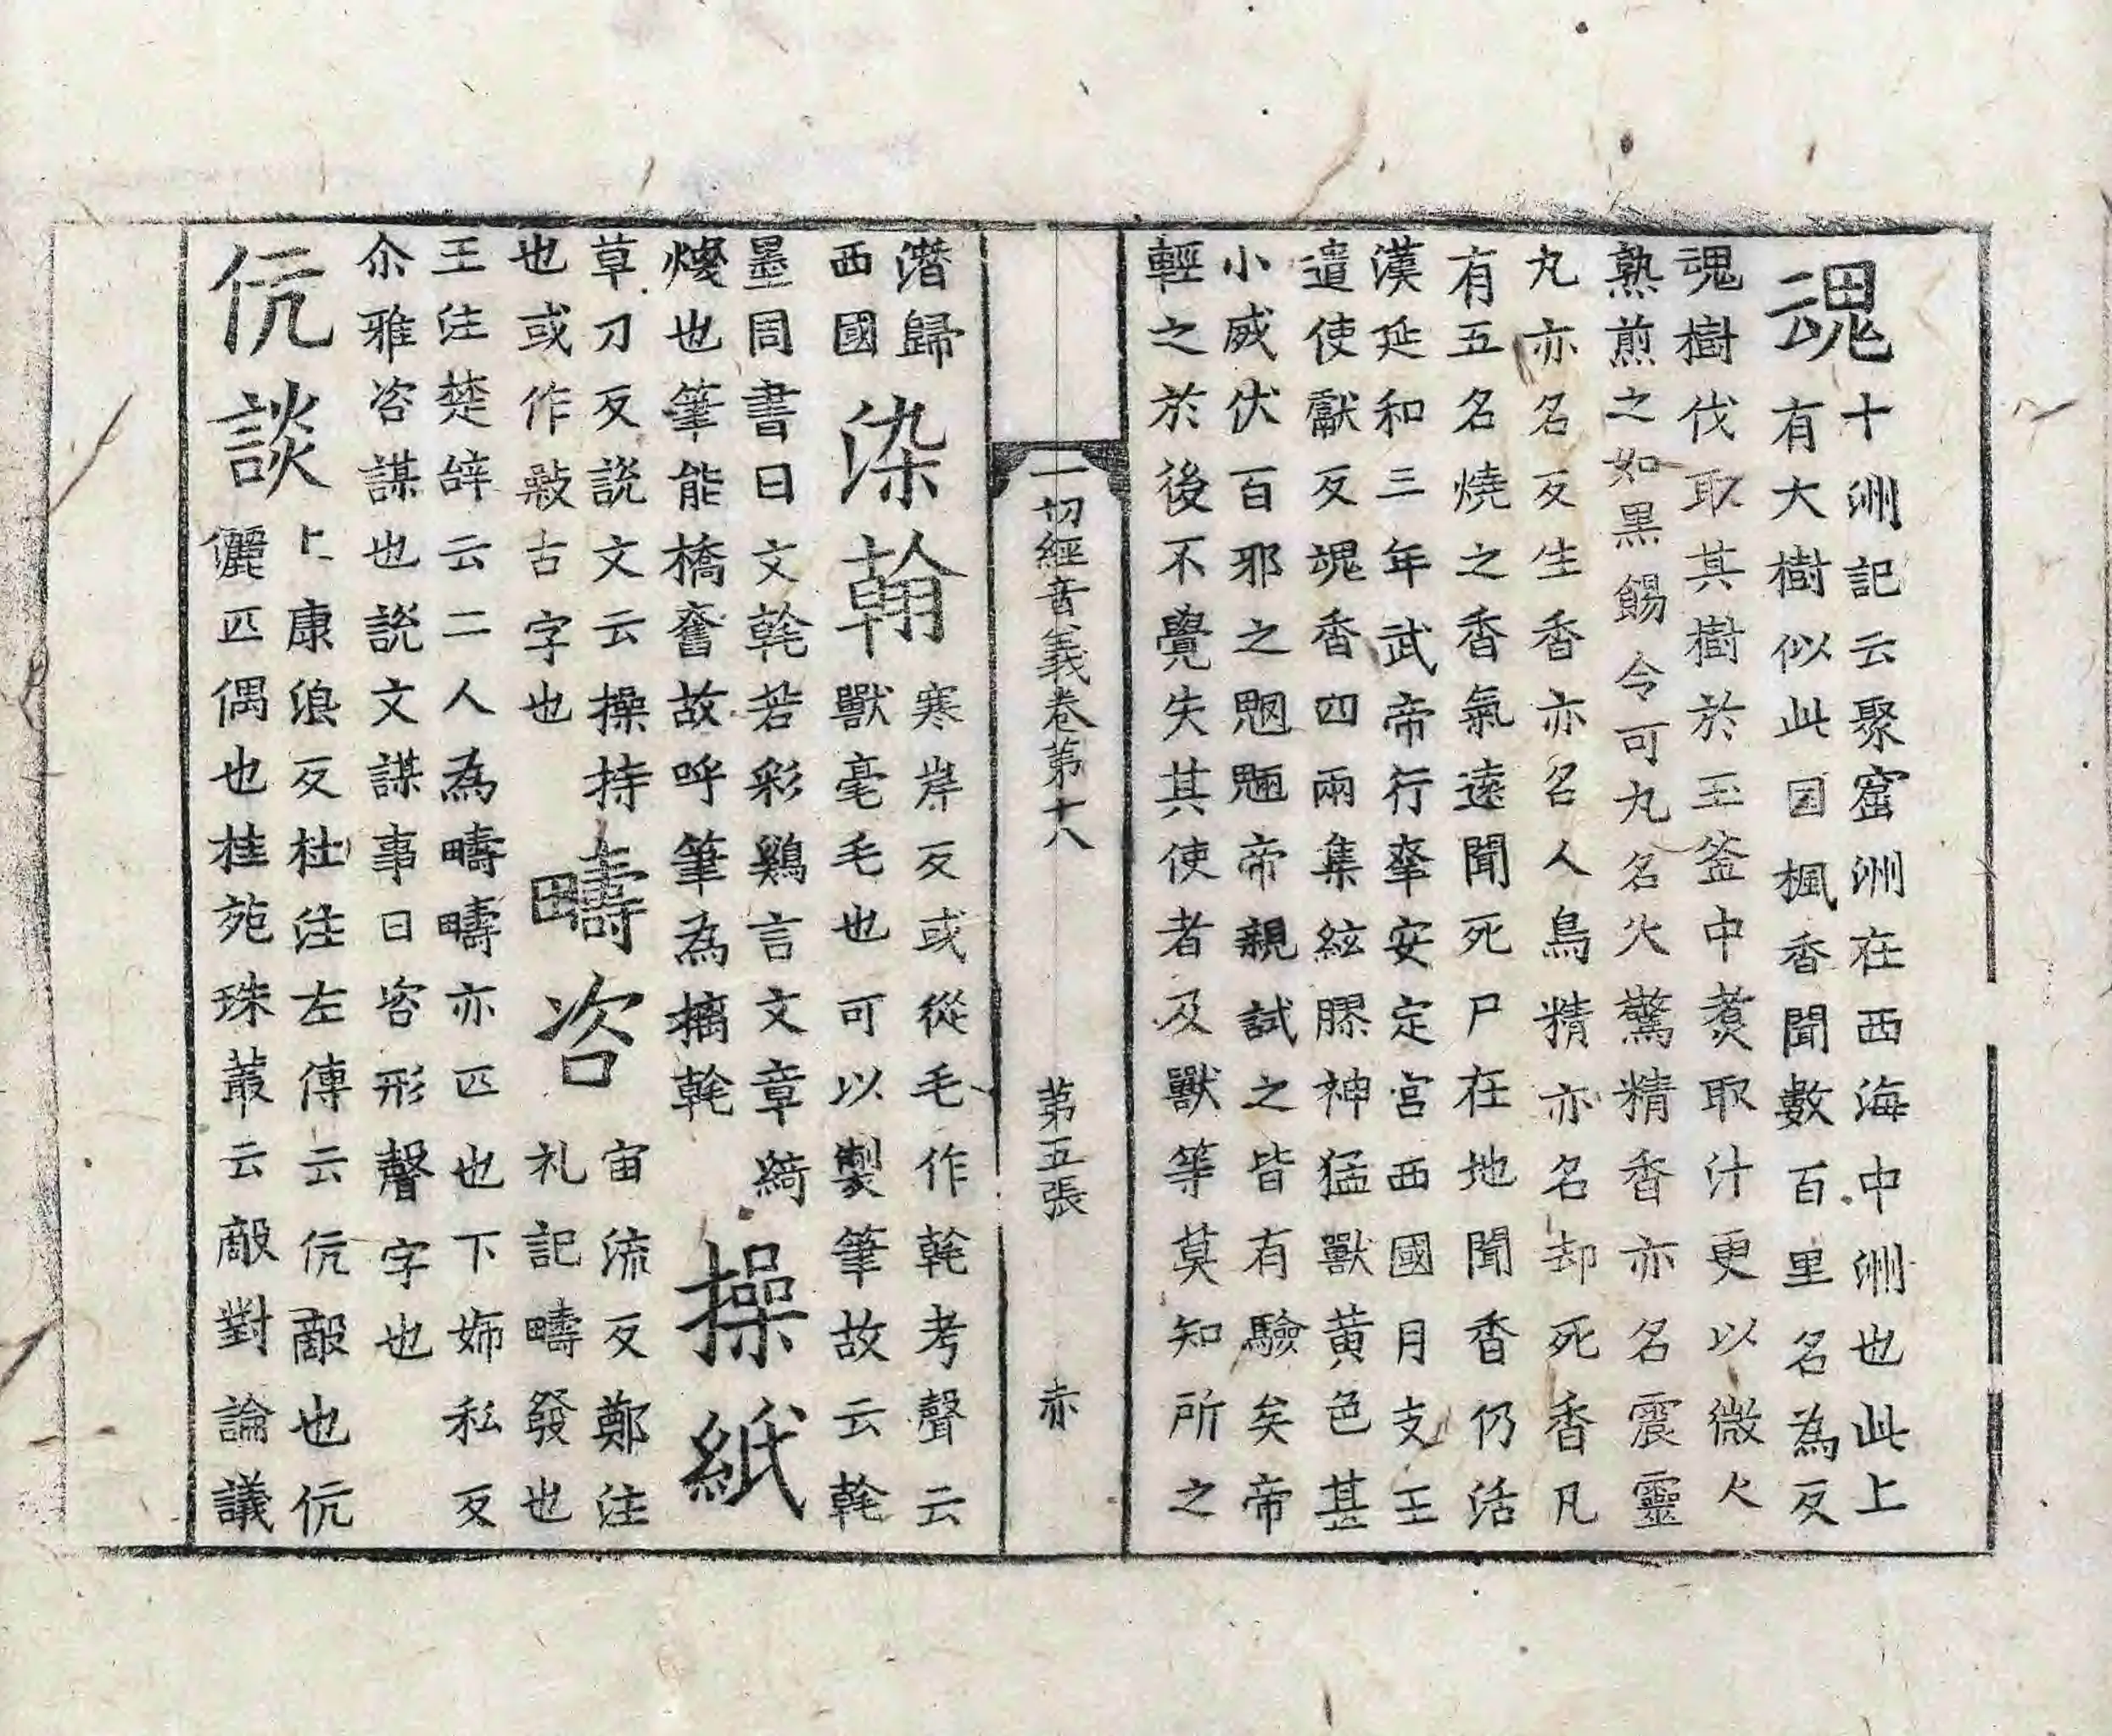 魂十洲記云聚窟洲在西海中洲也此上
有大樹似此国楓香聞數百里名為反
魂樹伐取其樹於玉釜中煮取汁更以微火
熟煎之如黒餳令可丸名火驚精香亦名震靈
丸亦名反生香亦名人鳥精亦名却死香凡
有五名燒之香氣遠聞死尸在地聞香仍活
漢延和三年武帝行幸安定宮西國月支王
遣使獻反魂香四兩集絃膠神猛獸黃色甚
小威伏百邪之魍魎帝親試之皆有驗矣帝
輕之於後不覺失其使者及獸等莫知所之
一切經音義卷第十八 第五張 赤
潛歸
西國
染翰
寒岸反或從毛作㲦考聲云
獸毫毛也可以製筆故云㲦
墨同書曰文㲦若彩鷄言文章綺
燦也筆能橋奮故呼筆為摛㲦
操紙
草刀反説文云操持
也或作敾古字也
疇咨
宙流反鄭注
礼記疇發也
王注楚辞云二人為疇疇亦匹也下姉私反
尒雅咨謀也説文謀事曰咨形聲字也
伉談
上康浪反杜注左傳云伉敵也伉
儷匹偶也桂苑珠叢云敵對論議